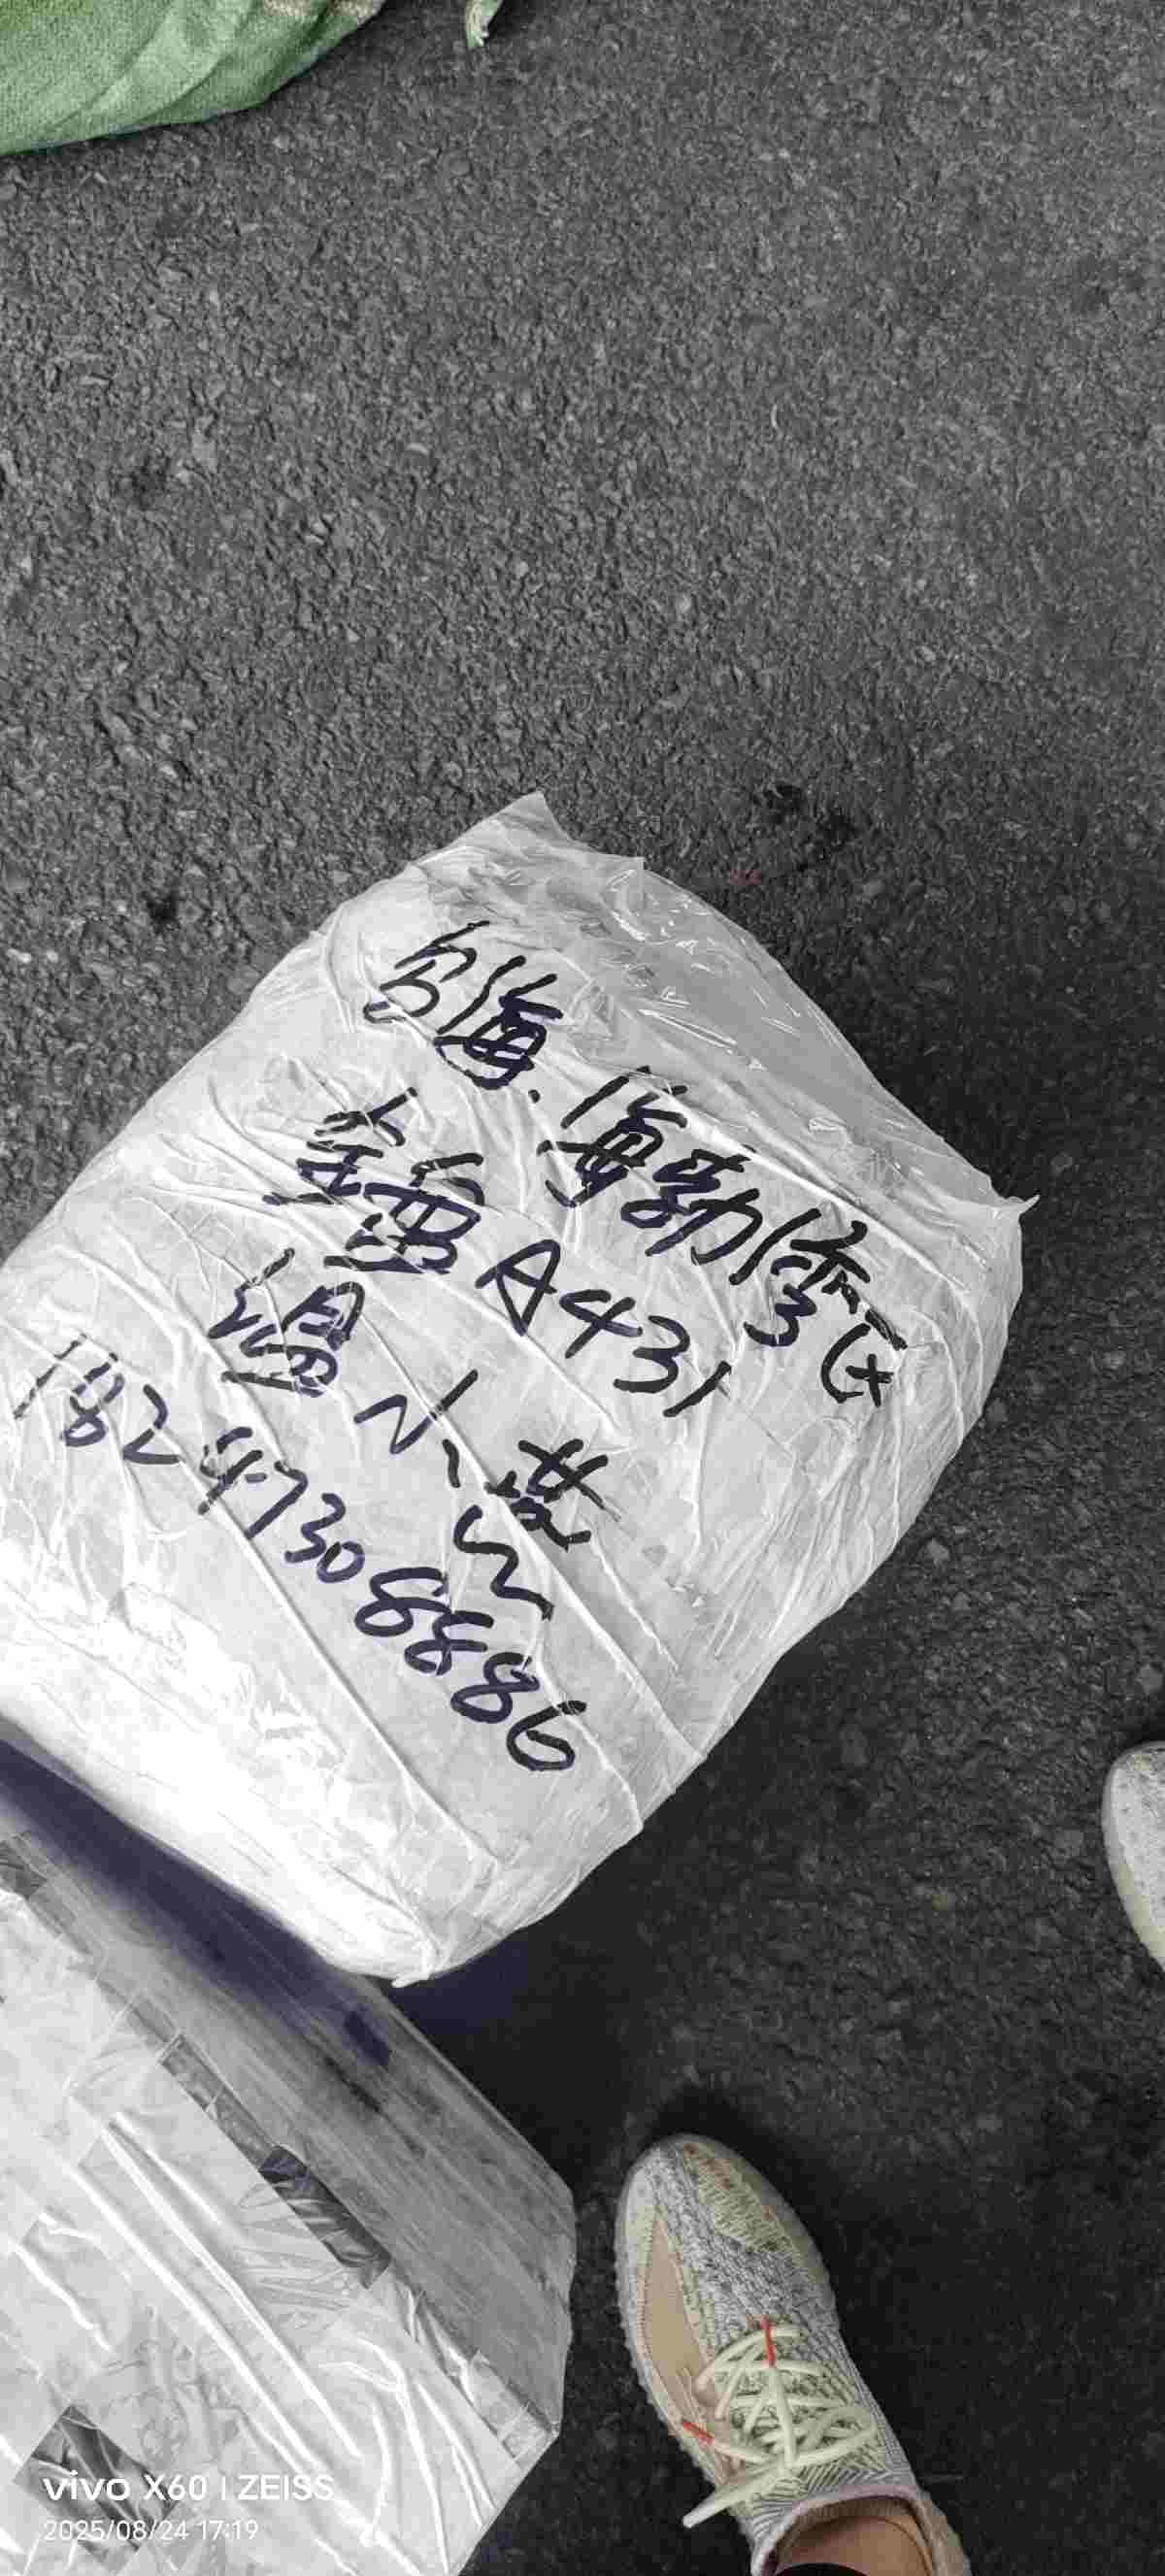 海勃湾区
A431
温小燕
18247308886
vivo X60 | ZEISS
2025/08/24 17:19